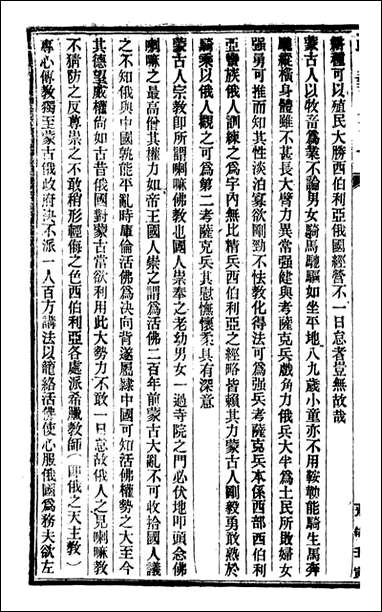 耕種可以殖民大勝西伯利亞俄國經營不一日怠者豈無故哉
蒙古人以牧畜爲業不論男女騎馬馳驅如坐平地八九歲小童亦不用鞍勒能騎生馬奔
馳縱橫身體雖不甚長大臂力異常强健與考薩克兵戲角力俄兵大半爲土民所敗婦女
强勇可推而知其性淡泊寡欲剛勁不怯教化得法可爲强兵考薩克兵本係西部西伯利
亞蠻族俄人訓練之爲宇內無比精兵西伯利亞之經略皆賴其力蒙古人剛毅勇敢熟於
騎乘以俄人觀之可爲第二考薩克兵其慰撫懷柔具有深意
蒙古人宗教即所謂喇嘛佛教也國人崇奉之老幼男女一過寺院之門必伏地叩頭念佛
喇嘛之最高僧其權力如帝王國人崇之謂爲活佛二百年前蒙古大亂不可收拾國人議
之不知俄與中國孰能平亂時庫倫活佛爲決向背遂愿隸中國可知活佛權勢之大至今
其德望威權尚如古昔俄國對蒙古當欲利用此大勢力不敢一日怠故俄人之見喇嘛教
不猜防之反尊崇之不敢稍形輕侮之色西伯利亞各處派希臘教師（即俄之天主教）
專心傳教獨至蒙古俄政府決不派一人百方講法以籠絡活佛使心服俄國爲務夫欲左